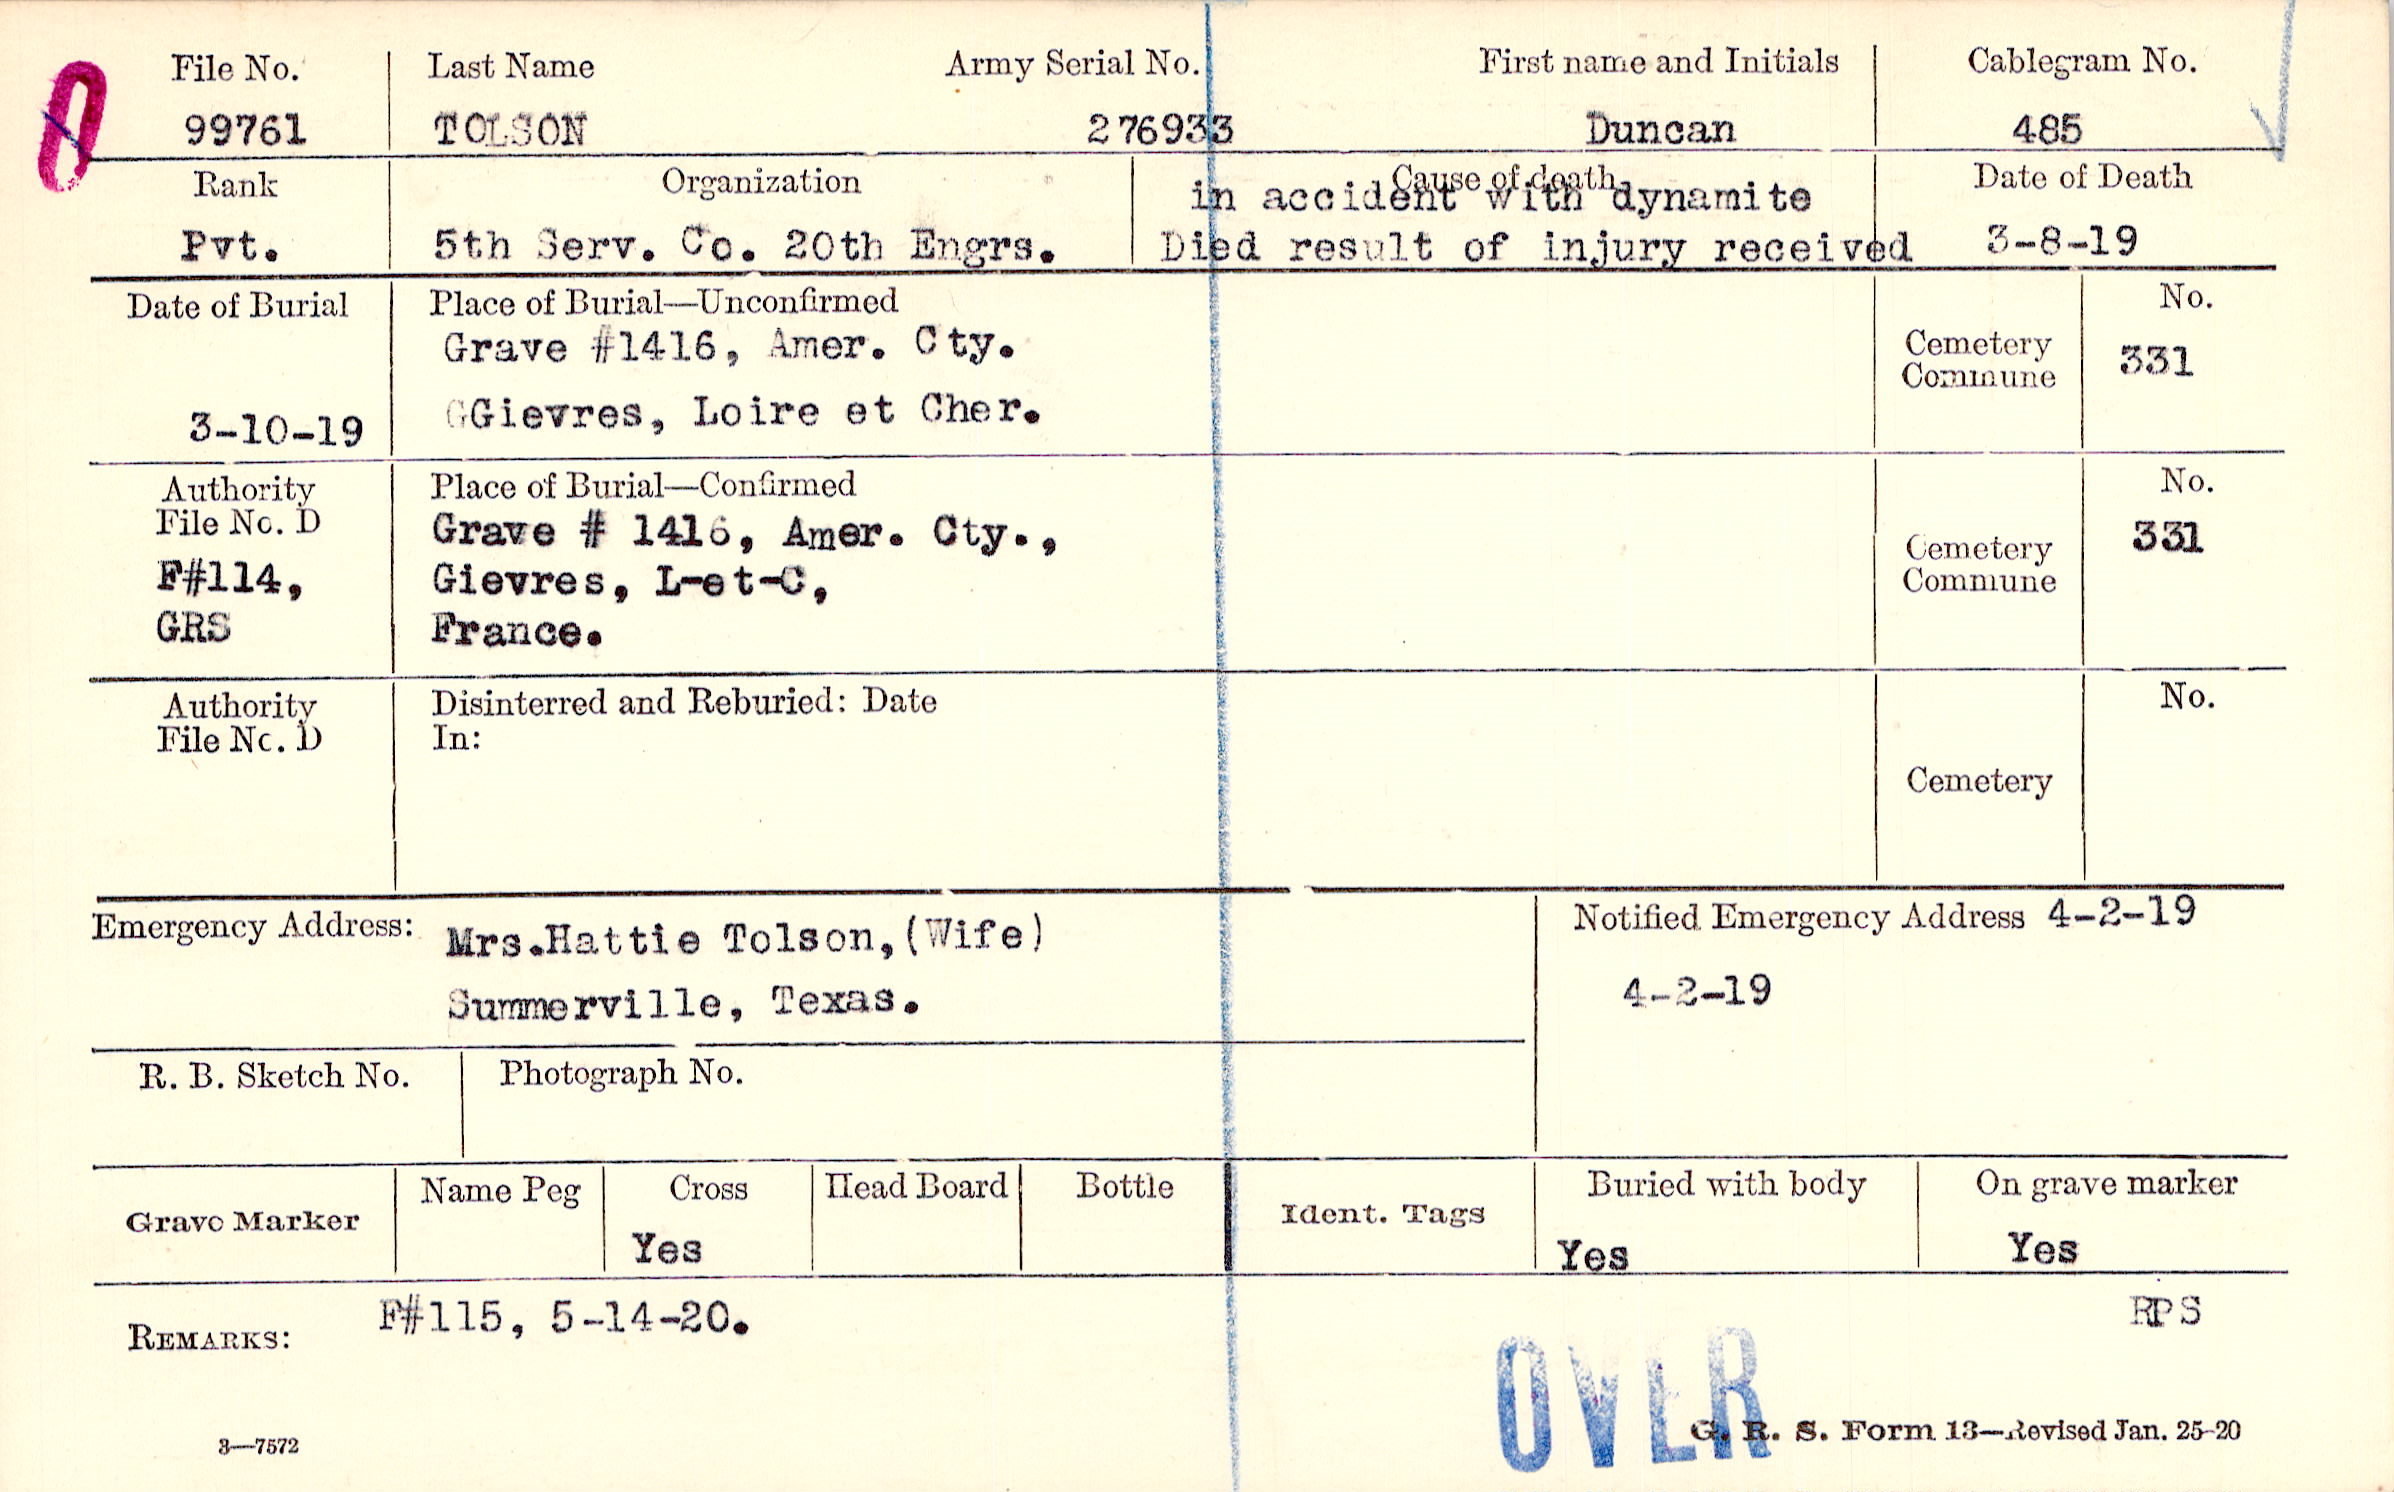 File No. Last Name Army Serial No. First name and Initials Cablegram No.
99761 TOLSON 276933 Duncan 485
Rank Organization Cause of death Date of Death
in accident with dynamite
Pvt. 5th Serv. Co. 20th Engrs. Died result of injury received 3-8-19
Date of Burial Place of Burial—Unconfirmed No.
Grave #1416, Amer. Cty. Cemetery 331
Commune
3-10-19 GGievres, Loire et Cher.
Authority Place of Burial—Confirmed No.
File No. D Grave # 1416, Amer. Cty., Cemetery 331
F#114, Gievres, L-et-C, Commune
GRS France.
Authority Disinterred and Reburied: Date No.
File No. D In:
Cemetery
Emergency Address: Mrs.Hattie Tolson,(Wife) Notified Emergency Address 4-2-19
Summerville, Texas. 4-2-19
R. B. Sketch No. Photograph No.
Grave Marker Name Peg Cross Head Board Bottle Ident. Tags Buried with body On grave marker
Yes Yes Yes
REMARKS: F#115, 5-14-20. RPS
OVER
3—7572 G. R. S. Form 13—Revised Jan. 25-20